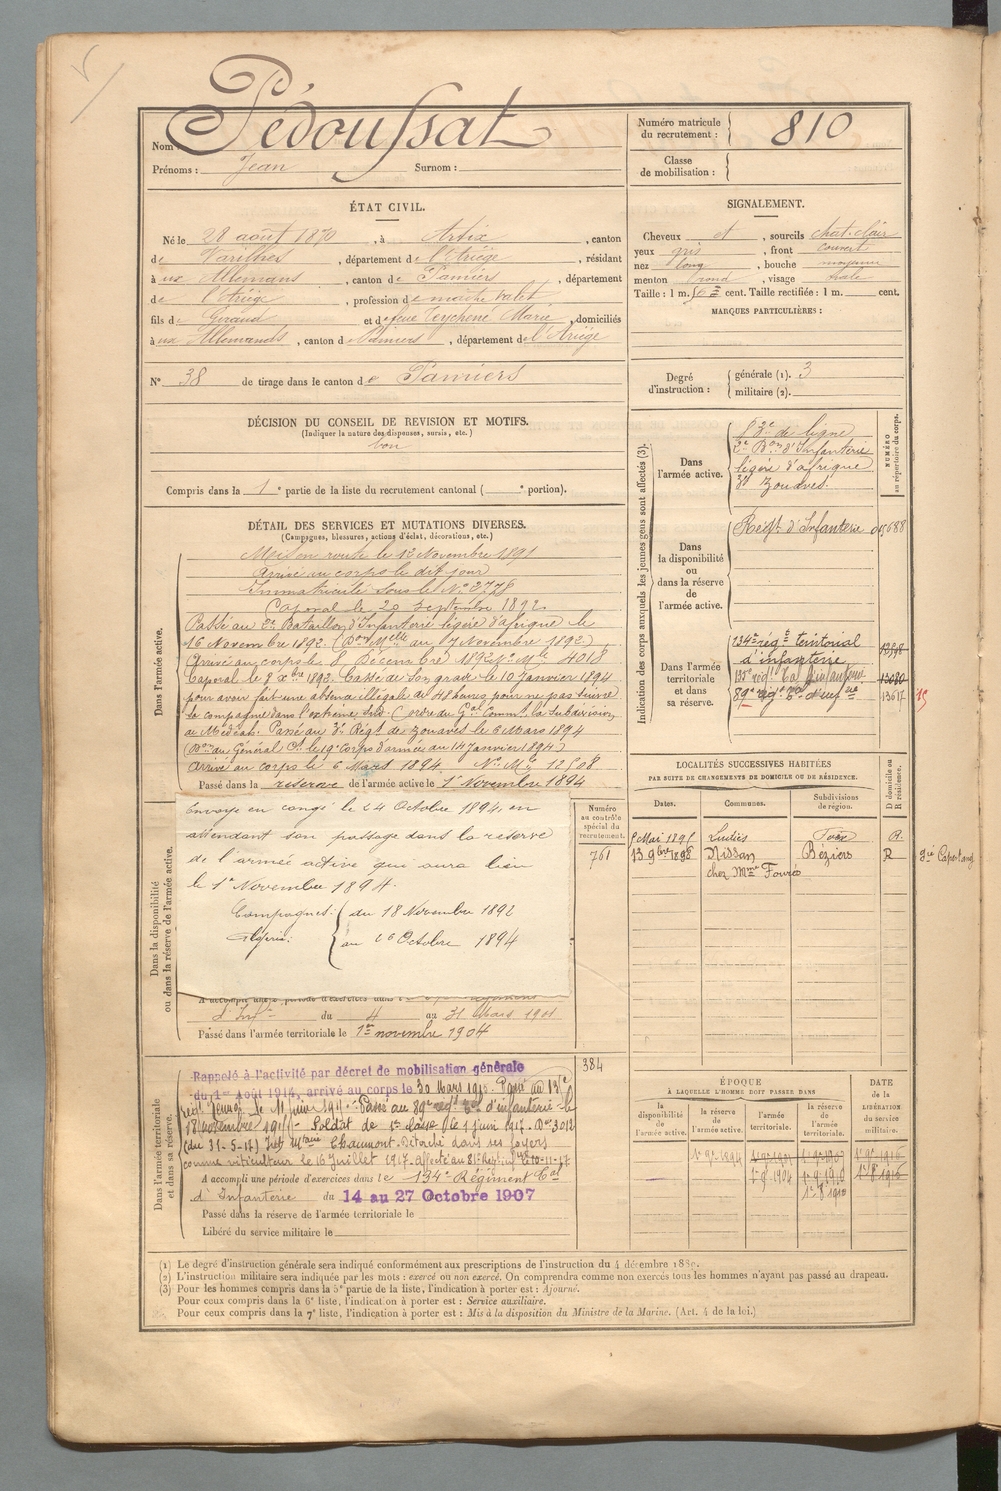 Nom Pédoussat
Prénoms : Jean Surnom :
Numéro matricule du recrutement : 810
Classe de mobilisation :
ÉTAT CIVIL.
Né le 28 août 1870, à Artix, canton
de Varilhes, département de l'Ariège, résidant
à ux Allemans, canton de Pamiers, département
de l'Ariège, profession de maître valet
fils de Géraud et de feue Teychené Marie, domiciliés
à ux Allemands, canton de Pamiers, département de l'Ariège
N° 38 de tirage dans le canton de Pamiers
DÉCISION DU CONSEIL DE REVISION ET MOTIFS.
(Indiquer la nature des dispenses, sursis, etc.)
bon
Compris dans la 1e partie de la liste du recrutement cantonal ( e portion).
SIGNALEMENT.
Cheveux et, sourcils chat. clair
yeux gris, front couvert
nez long, bouche moyenne
menton rond, visage ovale
Taille : 1 m. cent. Taille rectifiée : 1 m. cent.
MARQUES PARTICULIÈRES :
Degré d'instruction : générale (1). 3
militaire (2).
DÉTAIL DES SERVICES ET MUTATIONS DIVERSES.
(Campagnes, blessures, actions d'éclat, décorations, etc.)
Dans l'armée active.
Mis en route le 12 Novembre 1891
Arrivé au corps le dit jour
Immatriculé sous le No 2778
Caporal le 20 septembre 1892.
Passé au 2e Bataillon d'Infanterie légère d'afrique le
16 Novembre 1892. (Don Mlle du 7 Novembre 1892)
Arrivé au corps le 8 Décembre 1892 No Mle 4018
Caporal le 8 Xbre 1892. Cassé de son grade le 10 janvier 1894
pour avoir fait une absence illégale de 48 heures pour ne pas suivre
sa compagnie dans l'extrême Sud. (ordre du Gal Commt la Subdivision
de Médéah. Passé au 3e Régt de zouaves le 6 Mars 1894
(Don du Général Ct le 19e Corps d'armée du 14 Janvier 1894)
Arrivé au corps le 6 Mars 1894. No Mle 12508
Passé dans la réserve de l'armée active le 1er Novembre 1894
Dans la disponibilité ou dans la réserve de l'armée active.
Envoyé en congé le 24 Octobre 1894 en
attendant son passage dans la réserve
de l'armée active qui aura lieu
le 1er Novembre 1894.
Campagnes : du 18 Novembre 1892
Algérie : au 26 Octobre 1894
A accompli une période d'exercices dans
d'Infie du 4 au 31 Mars 1901
Passé dans l'armée territoriale le 1er novembre 1904
Numéro au contrôle spécial du recrutement.
761
384
Dans l'armée territoriale et dans sa réserve.
Rappelé à l'activité par décret de mobilisation générale
du 1er Août 1914, arrivé au corps le 30 Mars 1915. Passé au 135e
régt le 11 juin 1915. Passé au 89e régt d'infanterie le
18 novembre 1915. Soldat de 1e classe le 1 juin 1917. Don 3012
(du 31-5-17) Chaumont. Détaché dans ses foyers
comme viticulteur le 16 Juillet 1917. Affecté au 81e Régt Inf le 10-11-17
A accompli une période d'exercices dans le 134e Régiment Tal
d'Infanterie du 14 au 27 Octobre 1907
Passé dans la réserve de l'armée territoriale le
Libéré du service militaire le
Indication des corps auxquels les jeunes gens sont affectés (3).
NUMÉRO au répertoire du corps.
Dans l'armée active.
83e de ligne
2e Bon d'Infanterie
légère d'afrique
3e zouaves.
Dans la disponibilité ou dans la réserve de l'armée active.
Regt d'Infanterie 015688
Dans l'armée territoriale et dans sa réserve.
134e régt territorial
d'infanterie
135e régt Tal d'infanterie 13080
89e régt 13617 15
LOCALITÉS SUCCESSIVES HABITÉES
PAR SUITE DE CHANGEMENTS DE DOMICILE OU DE RÉSIDENCE.
Dates. Communes. Subdivisions de région. D domicile ou R résidence.
5 Mai 1895 Ludiès Foix R.
13 9bre 1898 Nissan Béziers R
chez Mme Fourès
ÉPOQUE
À LAQUELLE L'HOMME DOIT PASSER DANS
la disponibilité de l'armée active. la réserve de l'armée active. l'armée territoriale. la réserve de l'armée territoriale. DATE DE LA LIBÉRATION du service militaire.
1er 9bre 1894 1er 9bre 1901 1er 9bre 1907 1er 9bre 1916
1er 9 1904 1er 9 1910 1er 8 1916
1er 8 1910
(1) Le degré d'instruction générale sera indiqué conformément aux prescriptions de l'instruction du 4 décembre 1889.
(2) L'instruction militaire sera indiquée par les mots : exercé ou non exercé. On comprendra comme non exercés tous les hommes n'ayant pas passé au drapeau.
(3) Pour les hommes compris dans la 5e partie de la liste, l'indication à porter est : Ajourné.
Pour ceux compris dans la 6e liste, l'indication à porter est : Service auxiliaire.
Pour ceux compris dans la 7e liste, l'indication à porter est : Mis à la disposition du Ministre de la Marine. (Art. 4 de la loi.)